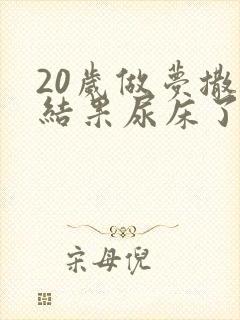 20歲做夢撒
結果尿床了
宋母倪